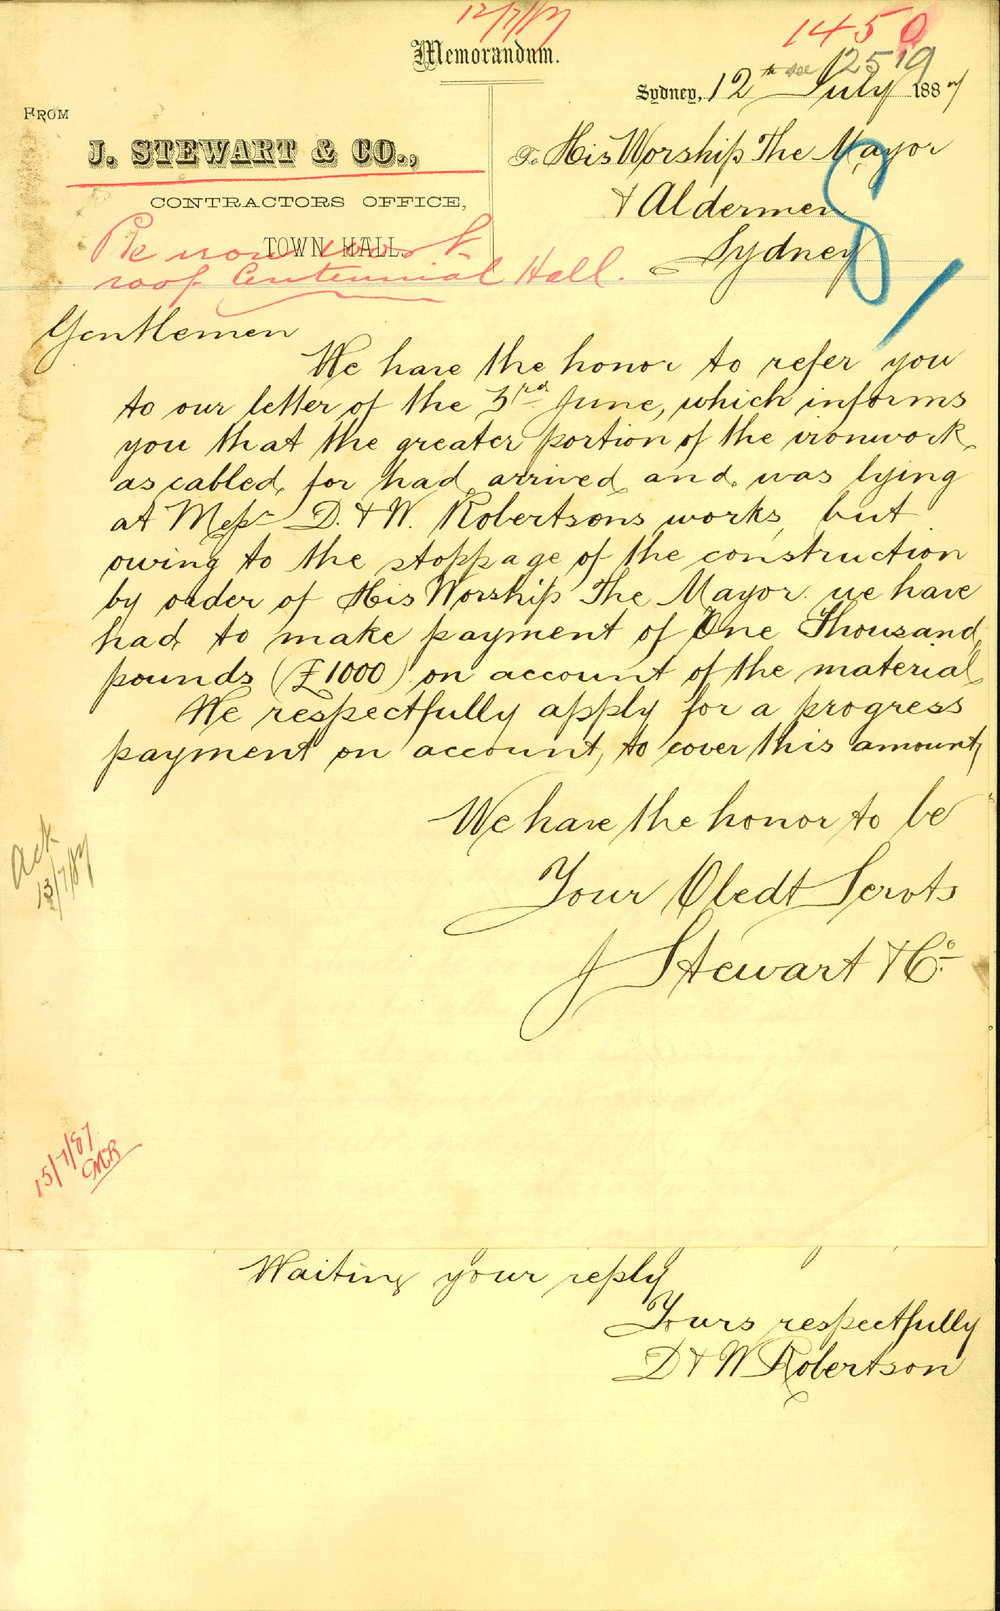 12/7/87
1450
Memorandum.
2519
Sydney, 12th July 1887
FROM
J. STEWART & CO.,
To His Worship The Mayor
CONTRACTORS OFFICE,
& Aldermen
TOWN HALL.
Sydney
Re iron work
roof Centennial Hall.
Gentlemen
We have the honor to refer you
to our letter of the 3rd June, which informs
you that the greater portion of the ironwork
as cabled for had arrived and was lying
at Messrs D. & W. Robertsons works, but
owing to the stoppage of the construction
by order of His Worship The Mayor we have
had to make payment of One Thousand
pounds (£1000) on account of the material
We respectfully apply for a progress
payment on account, to cover this amount,
We have the honor to be
Your Obedt Servts
J Stewart & Co.
Ack
13/7/87
15/7/87
Waiting your reply
Yours respectfully
D & W Robertson